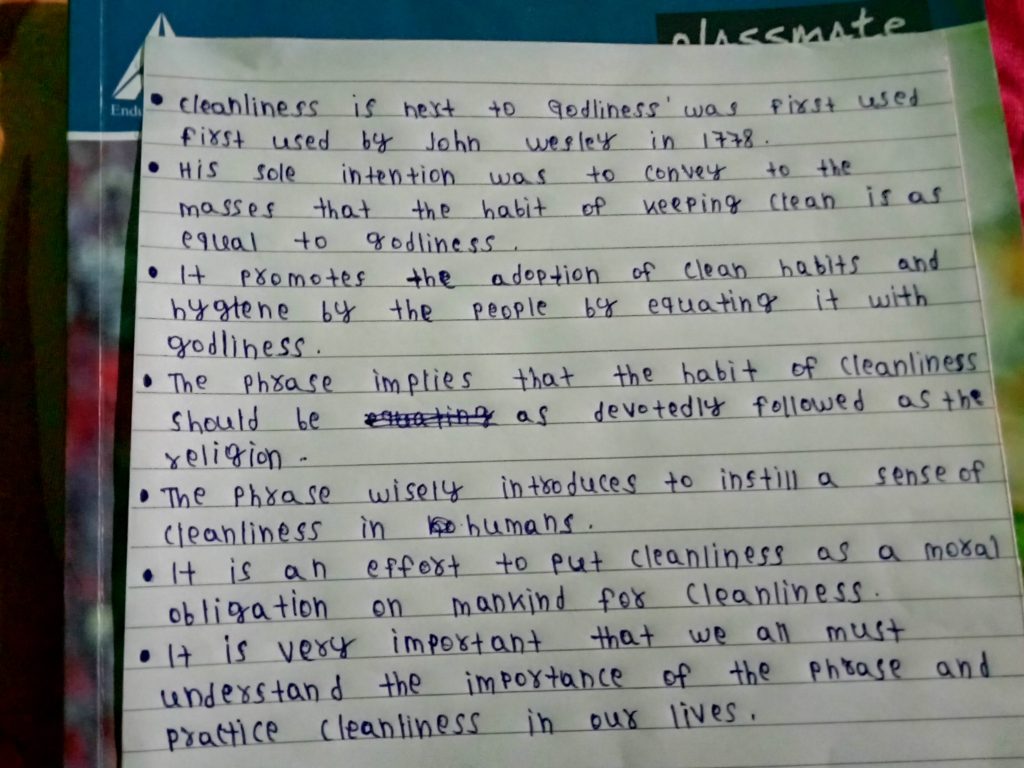 classmate
Endu
• Cleanliness is next to godliness' was first used
first used by John wesley in 1778.
• His sole intention was to convey to the
masses that the habit of keeping clean is as
equal to godliness.
• It promotes the adoption of clean habits and
hygiene by the people by equating it with
godliness.
• The phrase implies that the habit of cleanliness
should be equating as devotedly followed as the
religion.
• The phrase wisely introduces to instill a sense of
cleanliness in humans.
• It is an effort to put cleanliness as a moral
obligation on mankind for cleanliness.
• It is very important that we all must
understand the importance of the phrase and
practice cleanliness in our lives.